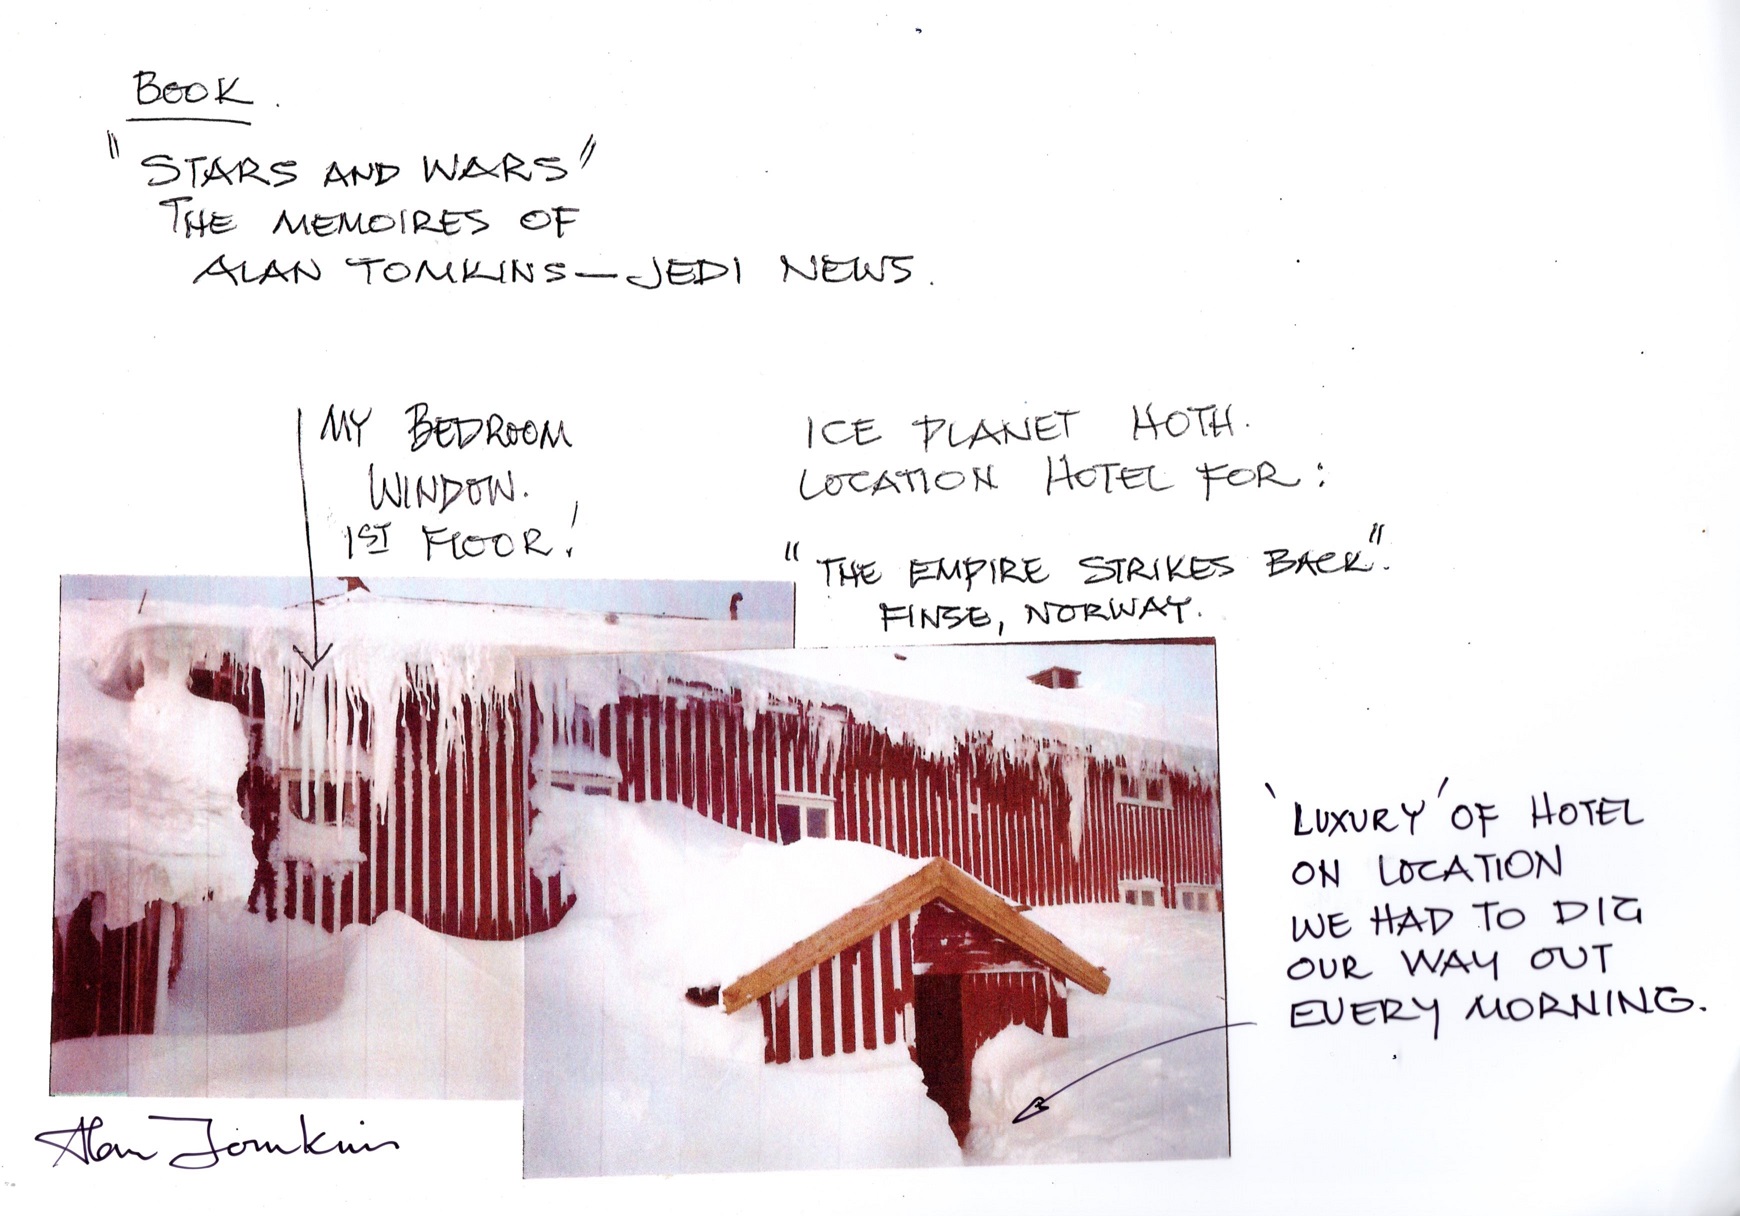 BOOK.
"STARS AND WARS"
THE MEMOIRES OF
ALAN TOMKINS — JEDI NEWS.
MY BEDROOM
WINDOW.
1ST FLOOR!
ICE PLANET HOTH.
LOCATION HOTEL FOR:
"THE EMPIRE STRIKES BACK".
FINSE, NORWAY.
'LUXURY' OF HOTEL
ON LOCATION
WE HAD TO DIG
OUR WAY OUT
EVERY MORNING.
Alan Tomkins